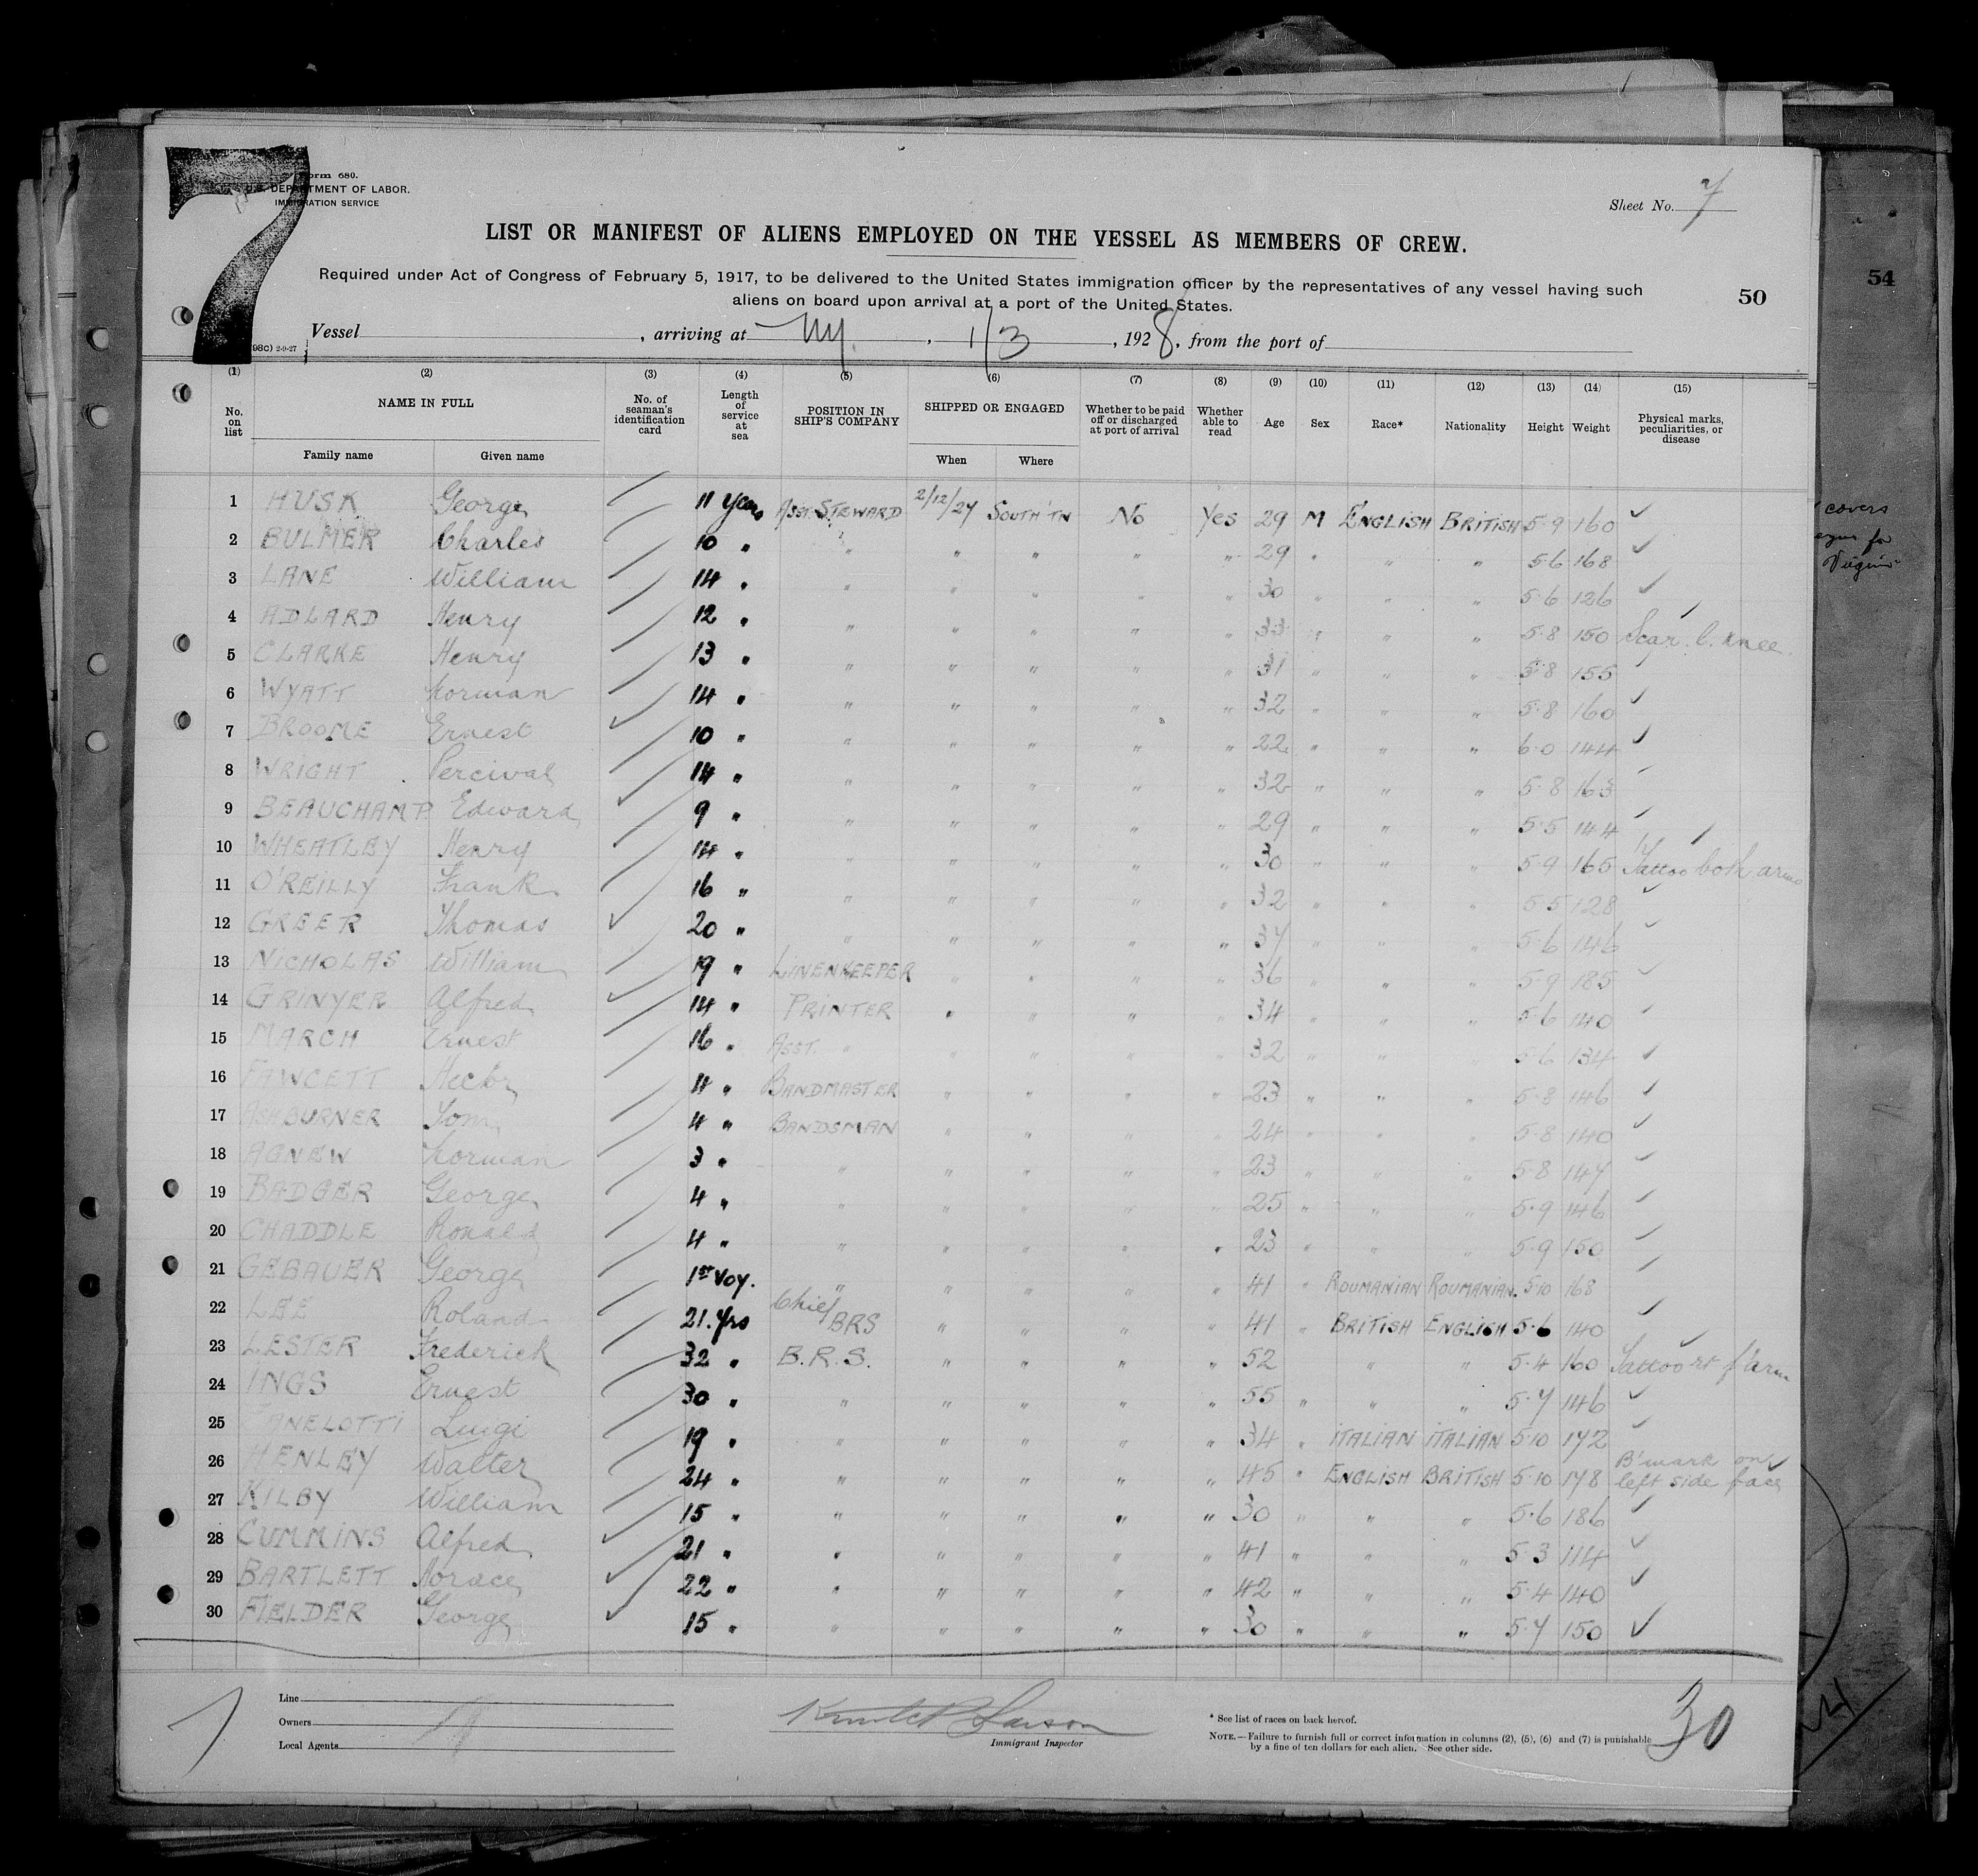 7
Form 680.
U.S. DEPARTMENT OF LABOR.
IMMIGRATION SERVICE
Sheet No. 7
LIST OR MANIFEST OF ALIENS EMPLOYED ON THE VESSEL AS MEMBERS OF CREW.
Required under Act of Congress of February 5, 1917, to be delivered to the United States immigration officer by the representatives of any vessel having such
aliens on board upon arrival at a port of the United States.
50
54
Vessel , arriving at NY. , 1/3 , 1928, from the port of
98c) 2-9-27
(1) (2) (3) (4) (5) (6) (7) (8) (9) (10) (11) (12) (13) (14) (15)
No. on list NAME IN FULL No. of seaman's identification card Length of service at sea POSITION IN SHIP'S COMPANY SHIPPED OR ENGAGED Whether to be paid off or discharged at port of arrival Whether able to read Age Sex Race* Nationality Height Weight Physical marks, peculiarities, or disease
Family name Given name When Where
1 HUSK George 11 years ASST. STEWARD 2/12/27 SOUTH'TN No Yes 29 M ENGLISH BRITISH 5-9 160 ✓
2 BULMER Charles 10 " " " " " " 29 " " " 5-6 168 ✓
3 LANE William 14 " " " " " " 30 " " " 5-6 126 ✓
4 ADLARD Henry 12 " " " " " " 33 " " " 5-8 150 Scar. l. knee.
5 CLARKE Henry 13 " " " " " " 31 " " " 5-8 155
6 WYATT Norman 14 " " " " " " 32 " " " 5-8 160 ✓
7 BROOME Ernest 10 " " " " " " 22 " " " 6-0 144 ✓
8 WRIGHT Percival 14 " " " " " " 32 " " " 5-8 163
9 BEAUCHAMP Edward 9 " " " " " " 29 " " " 5-5 144
10 WHEATLEY Henry 14 " " " " " " 30 " " " 5-9 165 Tattoo both arms
11 O'REILLY Frank 16 " " " " " " 32 " " " 5-5 128 ✓
12 GREER Thomas 20 " " " " " " 37 " " " 5-6 146 ✓
13 NICHOLAS William 19 " LINENKEEPER " " " " 36 " " " 5-9 185 ✓
14 GRINYER Alfred 14 " PRINTER " " " " 34 " " " 5-6 140 ✓
15 MARCH Ernest 16 " ASST. " " " " " 32 " " " 5-6 134 ✓
16 FAWCETT Hector 4 " BANDMASTER " " " " 23 " " " 5-8 146 ✓
17 ASHBURNER Tom 4 " BANDSMAN " " " " 24 " " " 5-8 140 ✓
18 AGNEW Norman 3 " " " " " " 23 " " " 5-8 147 ✓
19 BADGER George 4 " " " " " " 25 " " " 5-9 146 ✓
20 CHADDLE Ronald 4 " " " " " " 23 " " " 5-9 150 ✓
21 GEBAUER George 1st voy. " " " " " 41 " ROUMANIAN ROUMANIAN. 5-10 168
22 LEE Roland 21. yrs Chief BRS " " " " 41 " BRITISH ENGLISH 5-6 140 ✓
23 LESTER Frederick 32 " B.R.S. " " " " 52 " " 5-4 160 Tattoo rt f'arm
24 INGS Ernest 30 " " " " " " 55 " " " 5-7 146 ✓
25 ZANELOTTI Luigi 19 " " " " " " 34 " ITALIAN ITALIAN 5-10 172 ✓
26 HENLEY Walter 24 " " " " " " 45 " ENGLISH BRITISH 5-10 178 B'mark on left side face
27 KILBY William 15 " " " " " " 30 " " " 5-6 186 ✓
28 CUMMINS Alfred 21 " " " " " " 41 " " " 5-3 114 ✓
29 BARTLETT Horace 22 " " " " " " 42 " " " 5-4 140 ✓
30 FIELDER George 15 " " " " " " 30 " " " 5-7 150 ✓
Line
Owners
Local Agents
Immigrant Inspector
* See list of races on back hereof.
NOTE.—Failure to furnish full or correct information in columns (2), (5), (6) and (7) is punishable
by a fine of ten dollars for each alien. See other side.
30
covers
for